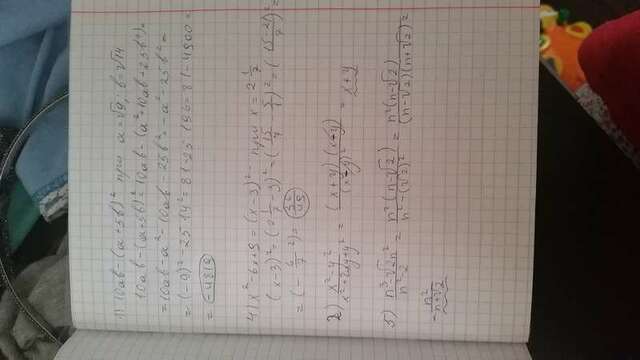 1) 10ab-(a+5b)² при a=√9; b=√14
10ab-(a+5b)²=10ab-(a²+10ab+25b²)=
=10ab-a²-10ab-25b²=-a²-25b²=
=(-9)²-25·14²=81-25·196=81-4900=
=-4819
4) x²-6x+9=(x-3)² при x=2 1/7
(x-3)²=(2 1/7-3)²=(15/7-3/1)²=(15-21/7)²=
=(-6/7)²=36/49
2) x²-y²/x²+2xy+y²=(x+y)(x-y)/(x-y)²=x+y
5) n³-√2n²/n²-2=n²(n-√2)/n²-(√2)²=n²(n-√2)/(n-√2)(n+√2)=
n²/n+√2